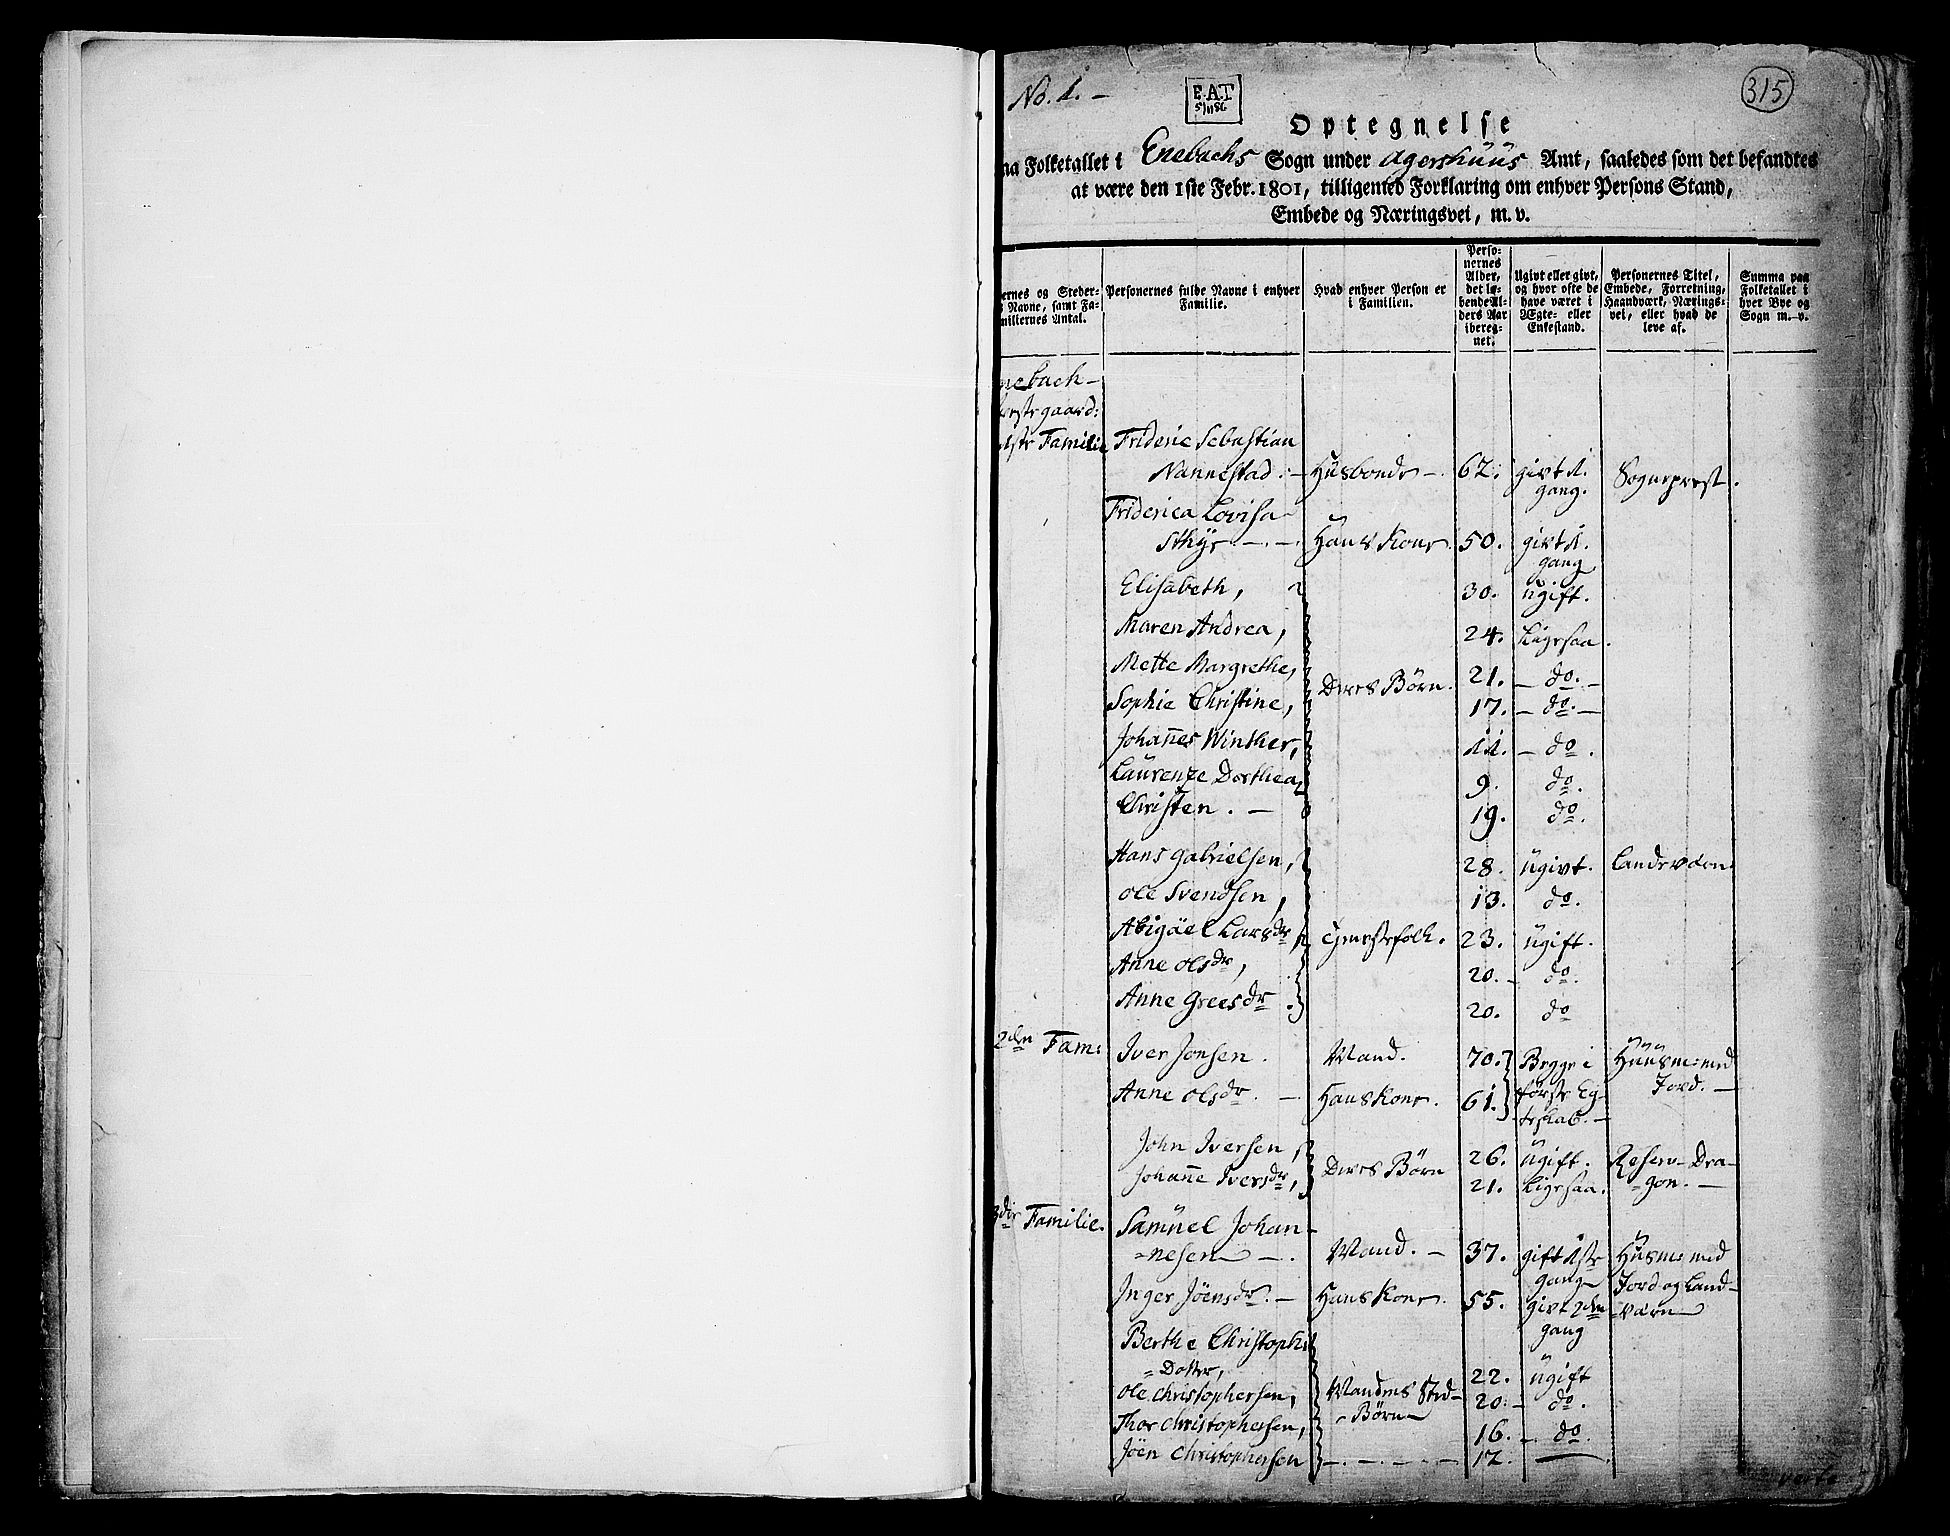 No. 1. –
315
E.A.T
5/11 86
Optegnelse
aa Folketallet i Enebachs Sogn under Agershuus Amt, saaledes som det befandtes
at være den 1ste Febr. 1801, tilligemed Forklaring om enhver Persons Stand,
Embede og Næringsvei, m. v.
ernes og Steder-
s Navne, samt Fa-
miliernes Antal.
Personernes fulde Navne i enhver
Familie.
Hvad enhver Person er
i Familien.
Perso-
nernes
Alder,
det lø-
bende Al-
ders Aar
ibereg-
net.
Ugivt eller givt,
og hvor ofte de
have været i
Ægte- eller
Enkestand.
Personernes Titel,
Embede, Forretning,
Haandværk, Nærings-
vei, eller hvad de
leve af.
Summa paa
Folketallet i
hver Bye og
Sogn m. v.
nebach –
Præstegaard:
1ste Familie Frideric Sebastian
Nannestad. – Husbonde – 62. givt 1. gang. Sognepræst.
Friderica Lovisa
Sthyr – . – . Hans Kone. 50. givt 1. gang
Elisabeth, 30. ugift.
Maren Andrea, 24. Ligesaa.
Mette Margrethe, Deres Børn. 21. – do. –
Sophie Christine, 17. – do. –
Johannes Winther, 11. – do.
Laurenze Dorthea, 9. do.
Christen. – 19. do.
Hans Gabrielsen, 28. ugivt. Landeværn
Ole Svendsen, 13. do.
Abigäel Larsdr Tjenestefolk. 23. ugift.
Anne Olsdr, 20. – do.
Anne Greesdr 20. do
2den Fam: Iver Jonsen. Mand. 70. Begge i Huusm: med
Anne Olsdr. – Hans Kone. 61. første Eg- Jord. –
teskab. –
John Iversen, Deres Børn 26. ugift. Reserv- Dra-
Johanne Iversdr, 21. Ligesaa. -gon. –
3die Familie. Samuel Johan-
-nesen – . Mand. – 37. gift 1ste gang Husm: med
Inger Jöensdr. – Hans Kone. 55. givt 2den gang Jord og Land-
-værn
Berthe Christophe
-Dotter, 22. ugift
Ole Christophersen, Mandens Sted- 20. – do.
Thor Christophersen, -Børn 16. – do.
Jöen Christophersen – . – . – 12. —
verte